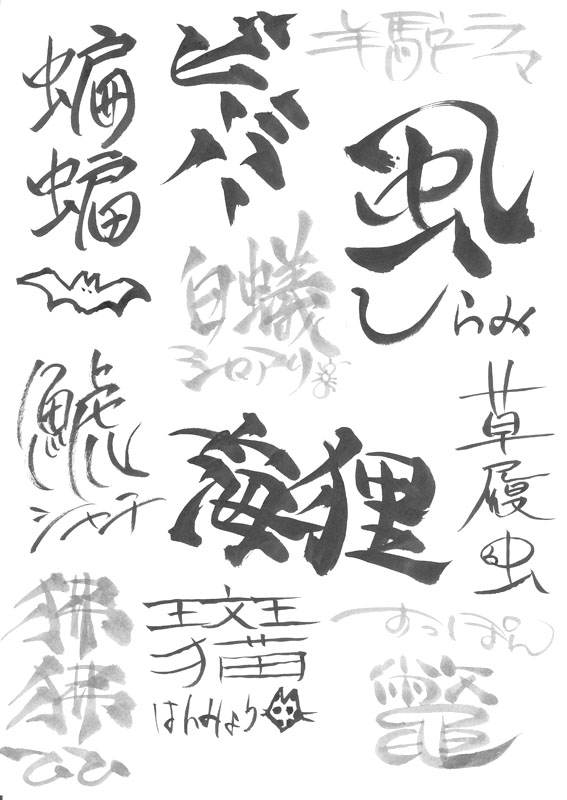 蝙蝠
ビーバー
羊駝ラマ
虱
しらみ
白蟻
シロアリ
鯱
シャチ
海狸
草履虫
狒狒
ひひ
斑猫
はんみょう
すっぽん
鼈